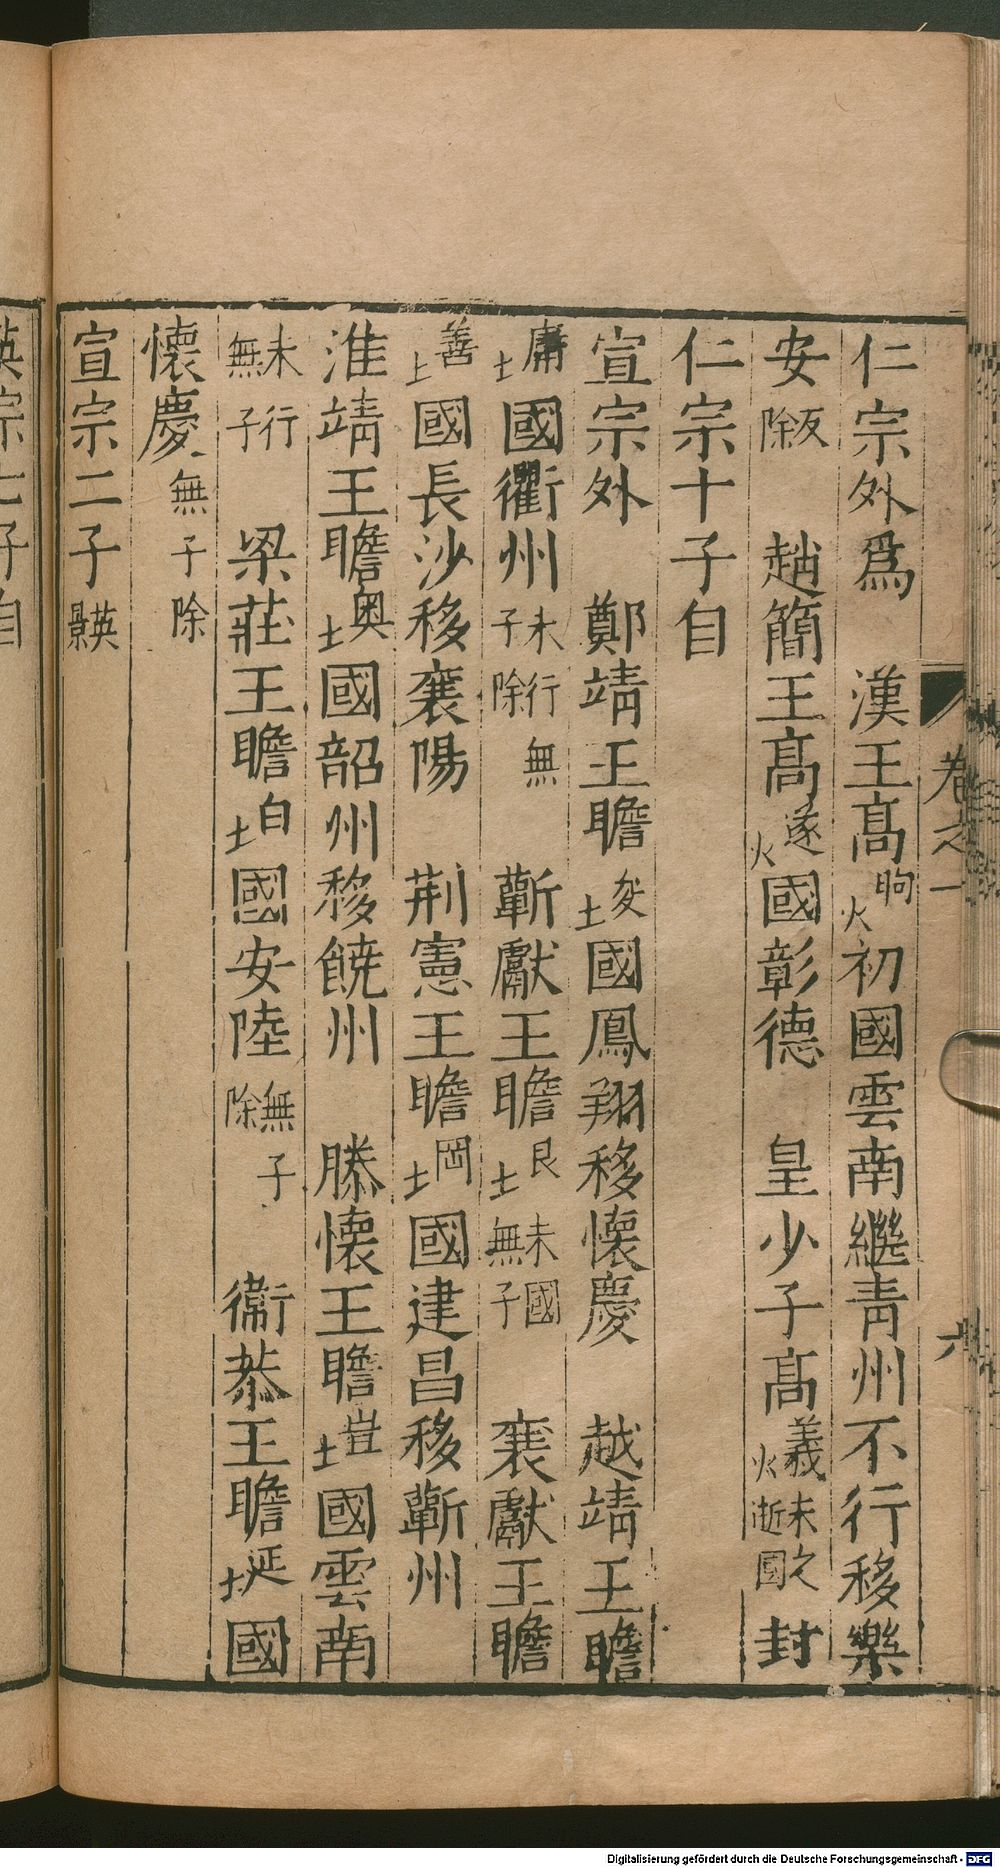 仁宗外爲　漢王高昫火初國雲南繼青州不行移樂
安反除　趙簡王高遂火國彰德　皇少子高義火未之國逝封
仁宗十子自
宣宗外　鄭靖王瞻埈土國鳳翔移懷慶　越靖王瞻
墉土國衢州未行無子除　蘄獻王瞻垠土未國無子　襄獻王瞻
墡土國長沙移襄陽　荆憲王瞻堈土國建昌移蘄州
淮靖王瞻墺土國韶州移饒州　滕懷王瞻塏土國雲南
未行無子　梁莊王瞻垍土國安陸無子除　衞恭王瞻埏土國
懷慶無子除
宣宗二子英景
卷之一　六
英宗七子自
Digitalisierung gefördert durch die Deutsche Forschungsgemeinschaft - DFG